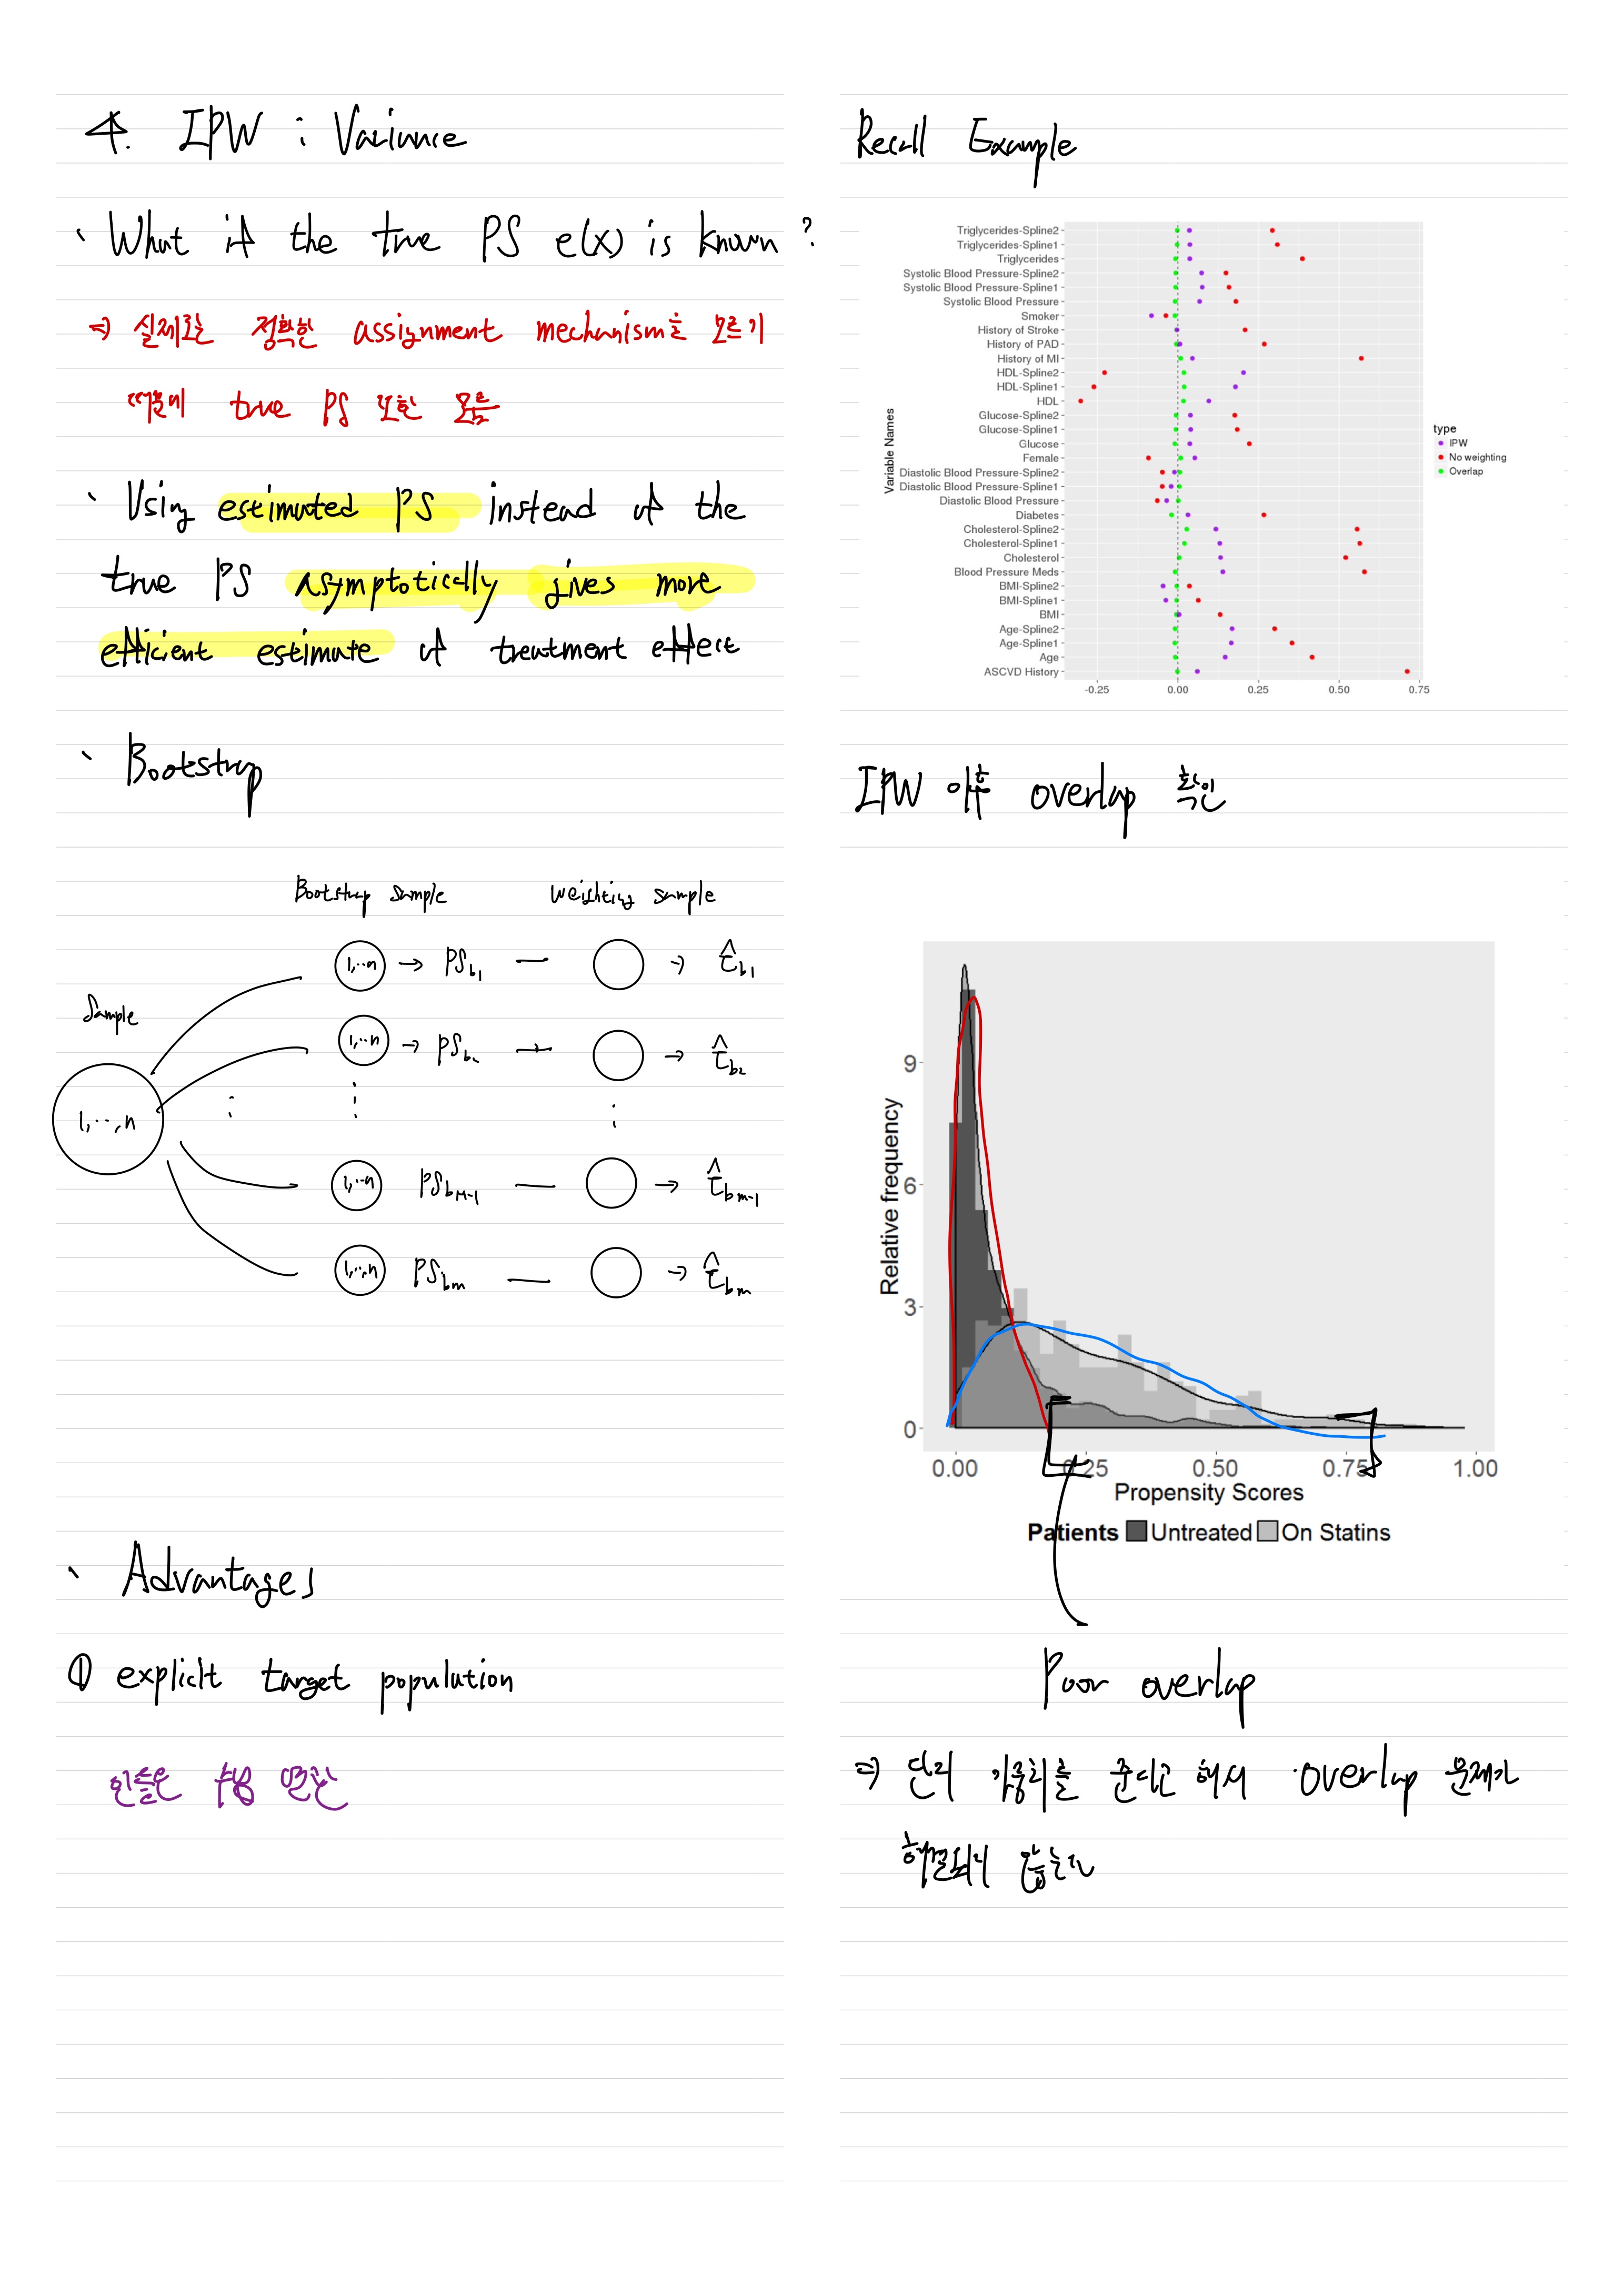 4. IPW : Variance
· What if the true PS e(x) is known ?
⇒ 실제로는 정확한 assignment mechanism을 모르기
때문에 true PS 또한 모름
· Using estimated PS instead of the
true PS asymptotically gives more
efficient estimate of treatment effect
· Bootstrap
Bootstrap sample weighting sample
Sample
1,...,n
1,...n → PS_b1 — → τ̂_b1
1,...n → PS_b2 — → τ̂_b2
1,...n PS_bM-1 — → τ̂_bm-1
1,...,n PS_bm — → τ̂_bm
· Advantages
① explicit target population
Recall Example
Variable Names
Triglycerides-Spline2
Triglycerides-Spline1
Triglycerides
Systolic Blood Pressure-Spline2
Systolic Blood Pressure-Spline1
Systolic Blood Pressure
Smoker
History of Stroke
History of PAD
History of MI
HDL-Spline2
HDL-Spline1
HDL
Glucose-Spline2
Glucose-Spline1
Glucose
Female
Diastolic Blood Pressure-Spline2
Diastolic Blood Pressure-Spline1
Diastolic Blood Pressure
Diabetes
Cholesterol-Spline2
Cholesterol-Spline1
Cholesterol
Blood Pressure Meds
BMI-Spline2
BMI-Spline1
BMI
Age-Spline2
Age-Spline1
Age
ASCVD History
-0.25 0.00 0.25 0.50 0.75
type
IPW
No weighting
Overlap
IPW 이후 overlap 확인
Relative frequency
9
6
3
0
0.00 0.25 0.50 0.75 1.00
Propensity Scores
Patients Untreated On Statins
Poor overlap
⇒ 단지 가중치를 준다고 해서 overlap 문제가
해결되지 않는다